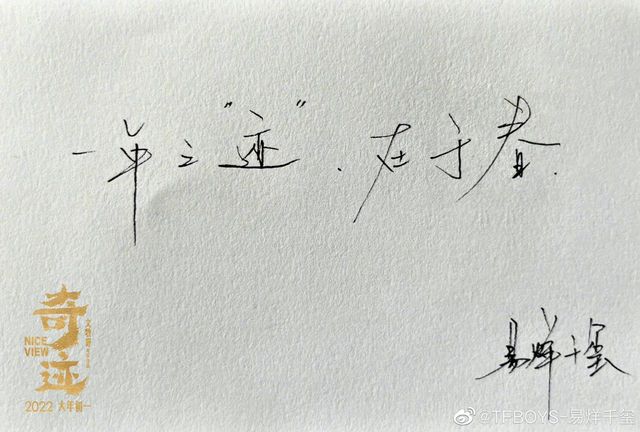 一年之“迹”，在于春.
奇迹
NICE
VIEW
文牧野
2022 大年初一
易烊千玺
@TFBOYS-易烊千玺